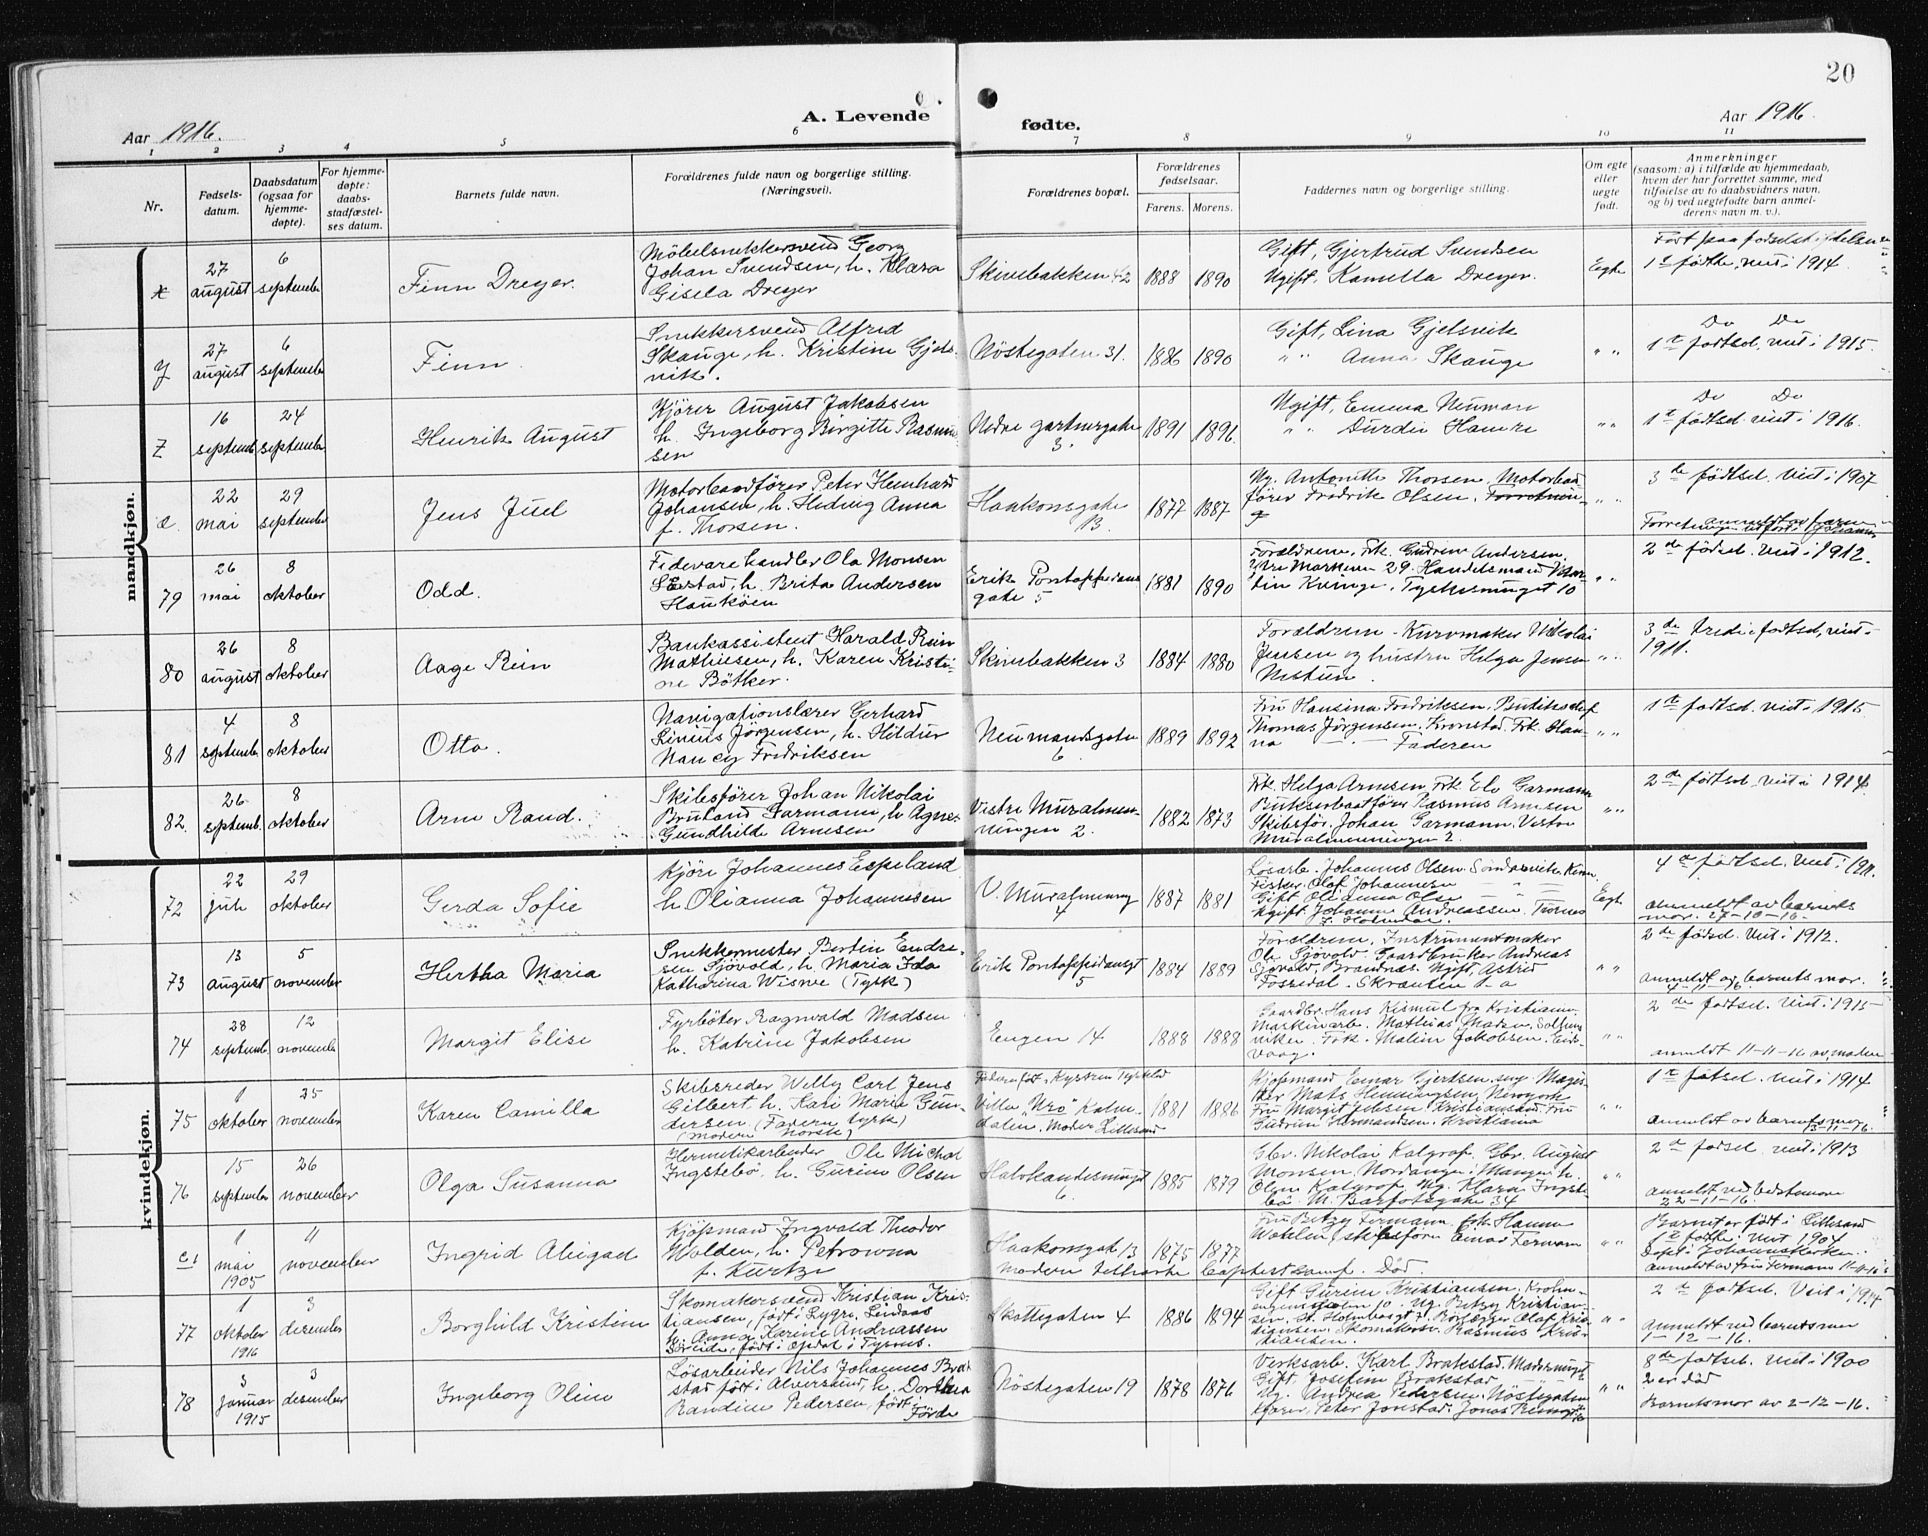 20
Aar 1916.
A. Levende
fødte.
Aar 1916.
1 2 3 4 5 6 7 8 9 10 11
Nr.
Fødsels-
datum.
Daabsdatum
(ogsaa for
hjemme-
døpte).
For hjemme-
døpte:
daabs-
stadfæstel-
ses datum.
Barnets fulde navn.
Forældrenes fulde navn og borgerlige stilling.
(Næringsvei).
Forældrenes bopæl.
Forældrenes
fødselsaar.
Farens. Morens.
Faddernes navn og borgerlige stilling.
Om egte
eller
uegte
født.
Anmerkninger
(saasom: a) i tilfælde av hjemmedaab,
hvem der har forrettet samme, med
tilføielse av to daabsvidners navn,
og b) ved uegtefødte barn anmel-
derens navn m. v.).
mandkjøn.
x
27
august
6
septembe
Finn Dreyer.
Möbelsnekkersvend Georg
Johan Svendsen, h. Klara
Gisela Dreyer
Skivebakken 42
1888
1890
Gift, Gjertrud Svendsen
Ugift, Kamilla Dreyer.
Egte
Født paa fødselst
1ste fødte, viet i 1914.
y
27
august
6
septembe
Finn.
Snekkersvend Alfred
Skauge, h. Kristine Gjels-
vik.
Nøstegaten 31.
1886
1890
Gift, Lina Gjelsvik
" " Anna Skauge
" "
Do Do
1ste fødsel. viet i 1915
z
16
septemb
24
septembe
Henrik August
Kjører August Jakobsen
h. Ingeborg Birgitte Rasmus-
sen
Nedre gartnergate
3.
1891
1896.
Ugift, Emma Neuman
" " Durdei Hamre
" "
Do Do
1ste fødsel viet i 1916.
æ
22
mai
29
september
Jens Juel
Motorbaadfører Peter
Johansen, h. Hedvig Anna
f. Thorsen.
Haakonsgate
13
1877
1887
Ug. Antonette Thorsen, Motorbaad
fører Fredrik Olsen.
" "
3de fødsel. Viet i 1907
79
26
mai
8
oktober
Odd.
Fedevarehandler Ola Monsen
h. Brita Andersen
Haukøen
Erik Pontoppidans
gate 5
1881
1890
Forældrene, Frk. Gudrun Andersen
Marken 29. Handelsmand
Kvinge, Tyskesmuget 10
" "
2de fødsel. Viet i 1912.
80
26
august
8
oktober
Aage Rein
Bankassistent Harald Rein
Mathiesen, h. Karen Kristi-
ne Bötker.
Skivebakken 3
1884
1880
Forældrene. Kurvmaker Nikolai
Jensen og hustru Helga Jensen
Nestun.
" "
3de fødsel, viet i
1911.
81
4
septemb.
8
oktober
Otto.
Navigationslærer Gerhard
Linius Jörgensen, h. Hildur
Nancy Fredriksen
Neumandsgate
6
1889
1892
Fru Hansina Fredriksen, Butikschef
Thomas Jörgensen. Kronstad. Frk. Han-
na — " — Faderen
" "
1ste fødsel. viet i 1915
82.
26
septemb.
8
oktober
Arne Rand.
Skibsfører Johan Nikolai
Bruland Garmann, h. Agnes
Gundhilde Arnesen
Vestre Muralmen-
ningen 2.
1882
1873
Frk. Helga Arnesen, Frk. Garmann
Bukserbaatfører Rasmus Arnesen
Skibsfør. Johan Garmann. Vestre
Muralmenningen 2.
" "
2de fødsel. viet i 1914.
kvindekjøn.
72
22
juli
29
oktober
Gerda Sofie
Kjöre Johannes Espeland
h. Olianna Johannesen
V. Muralmenng
4
1887
1881
Løsarb. Johannes Olsen.
Fisker Olaf Johannesen
Gift Olianna Olsen
Ugift Johanne Andreassen.
Egte
4de fødsel. Viet i 1911.
anmeldt av barnets
mor. 27-10-16.
73
13
august
5
november
Hertha Maria
Snekkermester Bertin Endre-
sen Sjövold, h. Maria Ida
Katharina Wisne (Tysk)
Erik Pontoppidansgt
5
1884
1889
Forældrene, Instrumentmaker
Ole Sjövold. Gaardbruker Andreas
Sjövold, Brandnes. Ugift, Astrid
Fossedal. Skranten 1a
" "
2de fødsel. Viet i 1912.
anmeldt av barnets mor.
4-11-16.
74
28
septemb.
12
novembe
Margit Elise
Fyrböter Ragnvald Madsen
h. Katrine Jakobsen
Engen 14
1888
1888
Gaardbr. Hans Kismul
Maskinarb. Mathias Madsen,
Frk. Malene Jakobsen.
" "
2den fødsel. Viet i 1915
anmeldt 11-11-16 av moderen
75
1
oktober
25
november
Karen Camilla
Skibsreder Welly Carl Jens
Gilbert h. Kari Marie Gun-
dersen. (Faderen tysk)
(Moderen Norsk)
Villa "Uro" Kalve-
dalen. Moder Lillesand
1881
1886
Kjøpmand Einar Gjertsen
Mats Henningsen Newyork
Fru Margit Jebsen. Kristiansand. Fru
Gudrun Hermansen. Kristiania
" "
1ste fødsel. viet i 1914
anmeldt av barnets mor
76
15
september
26
november
Olga Susanna
Hermetikarbeider Ole Michal
Ingstebö. h. Gurine Olsen
6
1885
1879
Gbr. Nikolai Kalgraf. Gbr. August
Monsen. Nordanger i Manger h.
Olga Kalgraf. Ug. Klara Ingste-
bö M. Barfotsgate 34
" "
2de fødsel viet i 1913
anmeldt ved bedstemore
22-11-16.
1
mai
1905
4
november
Ingrid Abigad
Kjöpmand Ingvald Theodor
Wolden, h. Petrowna
f. Kurtze
Haakonsgat 13
1875
1877
Fru Betzy Fermann. frk. Hanna
Watlen, skibsfører Einar Fermann
" "
Barnet er født i Lillesand
1ste fødte. Viet 1904
Døpt i Johanneskirken
anmeldt av Fru Fermann 11-11-16
77
1
oktober
1916
3
desember
Borghild Kristine
Skomakersvend Kristian Kris-
tiansen, født i Lygre, Lindaas
h. Anna Karine Andreassen
født i Opdal i Tysnes.
Skottegaten 4
1886
1894
Gift Gurine Kristiansen.
Ug. Betzy Kristian-
sen. Rörlægger Olaf Kris-
tiansen. Skomakersv. Rasmus Kris-
tiansen.
" "
2de fødsel. Viet i 1914
anmeldt ved barnets mor
1-12-16.
78
3
januar
1915
3
desember
Ingeborg Oline
Løsarbeider Nils Johannes Brak-
stad født i Alversund, h. Dorthea
Randine Pedersen, født i
Förde
Nöstegaten 19
1878
1876
Verksarb. Karl Brakstad.
Gift. Josefine Brakstad
Ug. Andrea Pedersen. Nöstegaten
Peter Jonstad.
" "
8de fødsel. Viet i 1900
2 er död
Barnets mor av 2-12-16.